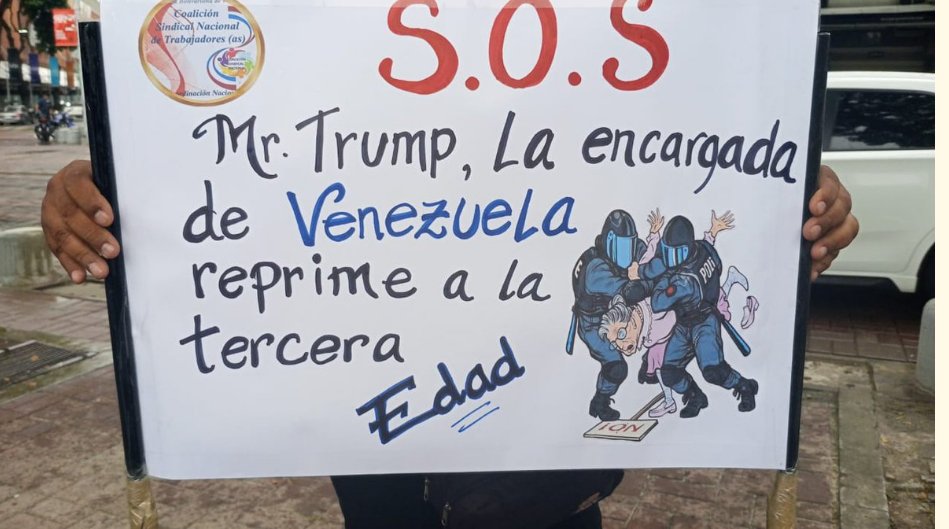 Coalición
Sindical Nacional
de Trabajadores (as)
S.O.S
Mr. Trump, La encargada
de Venezuela
reprime a la
tercera
Edad
¡ON